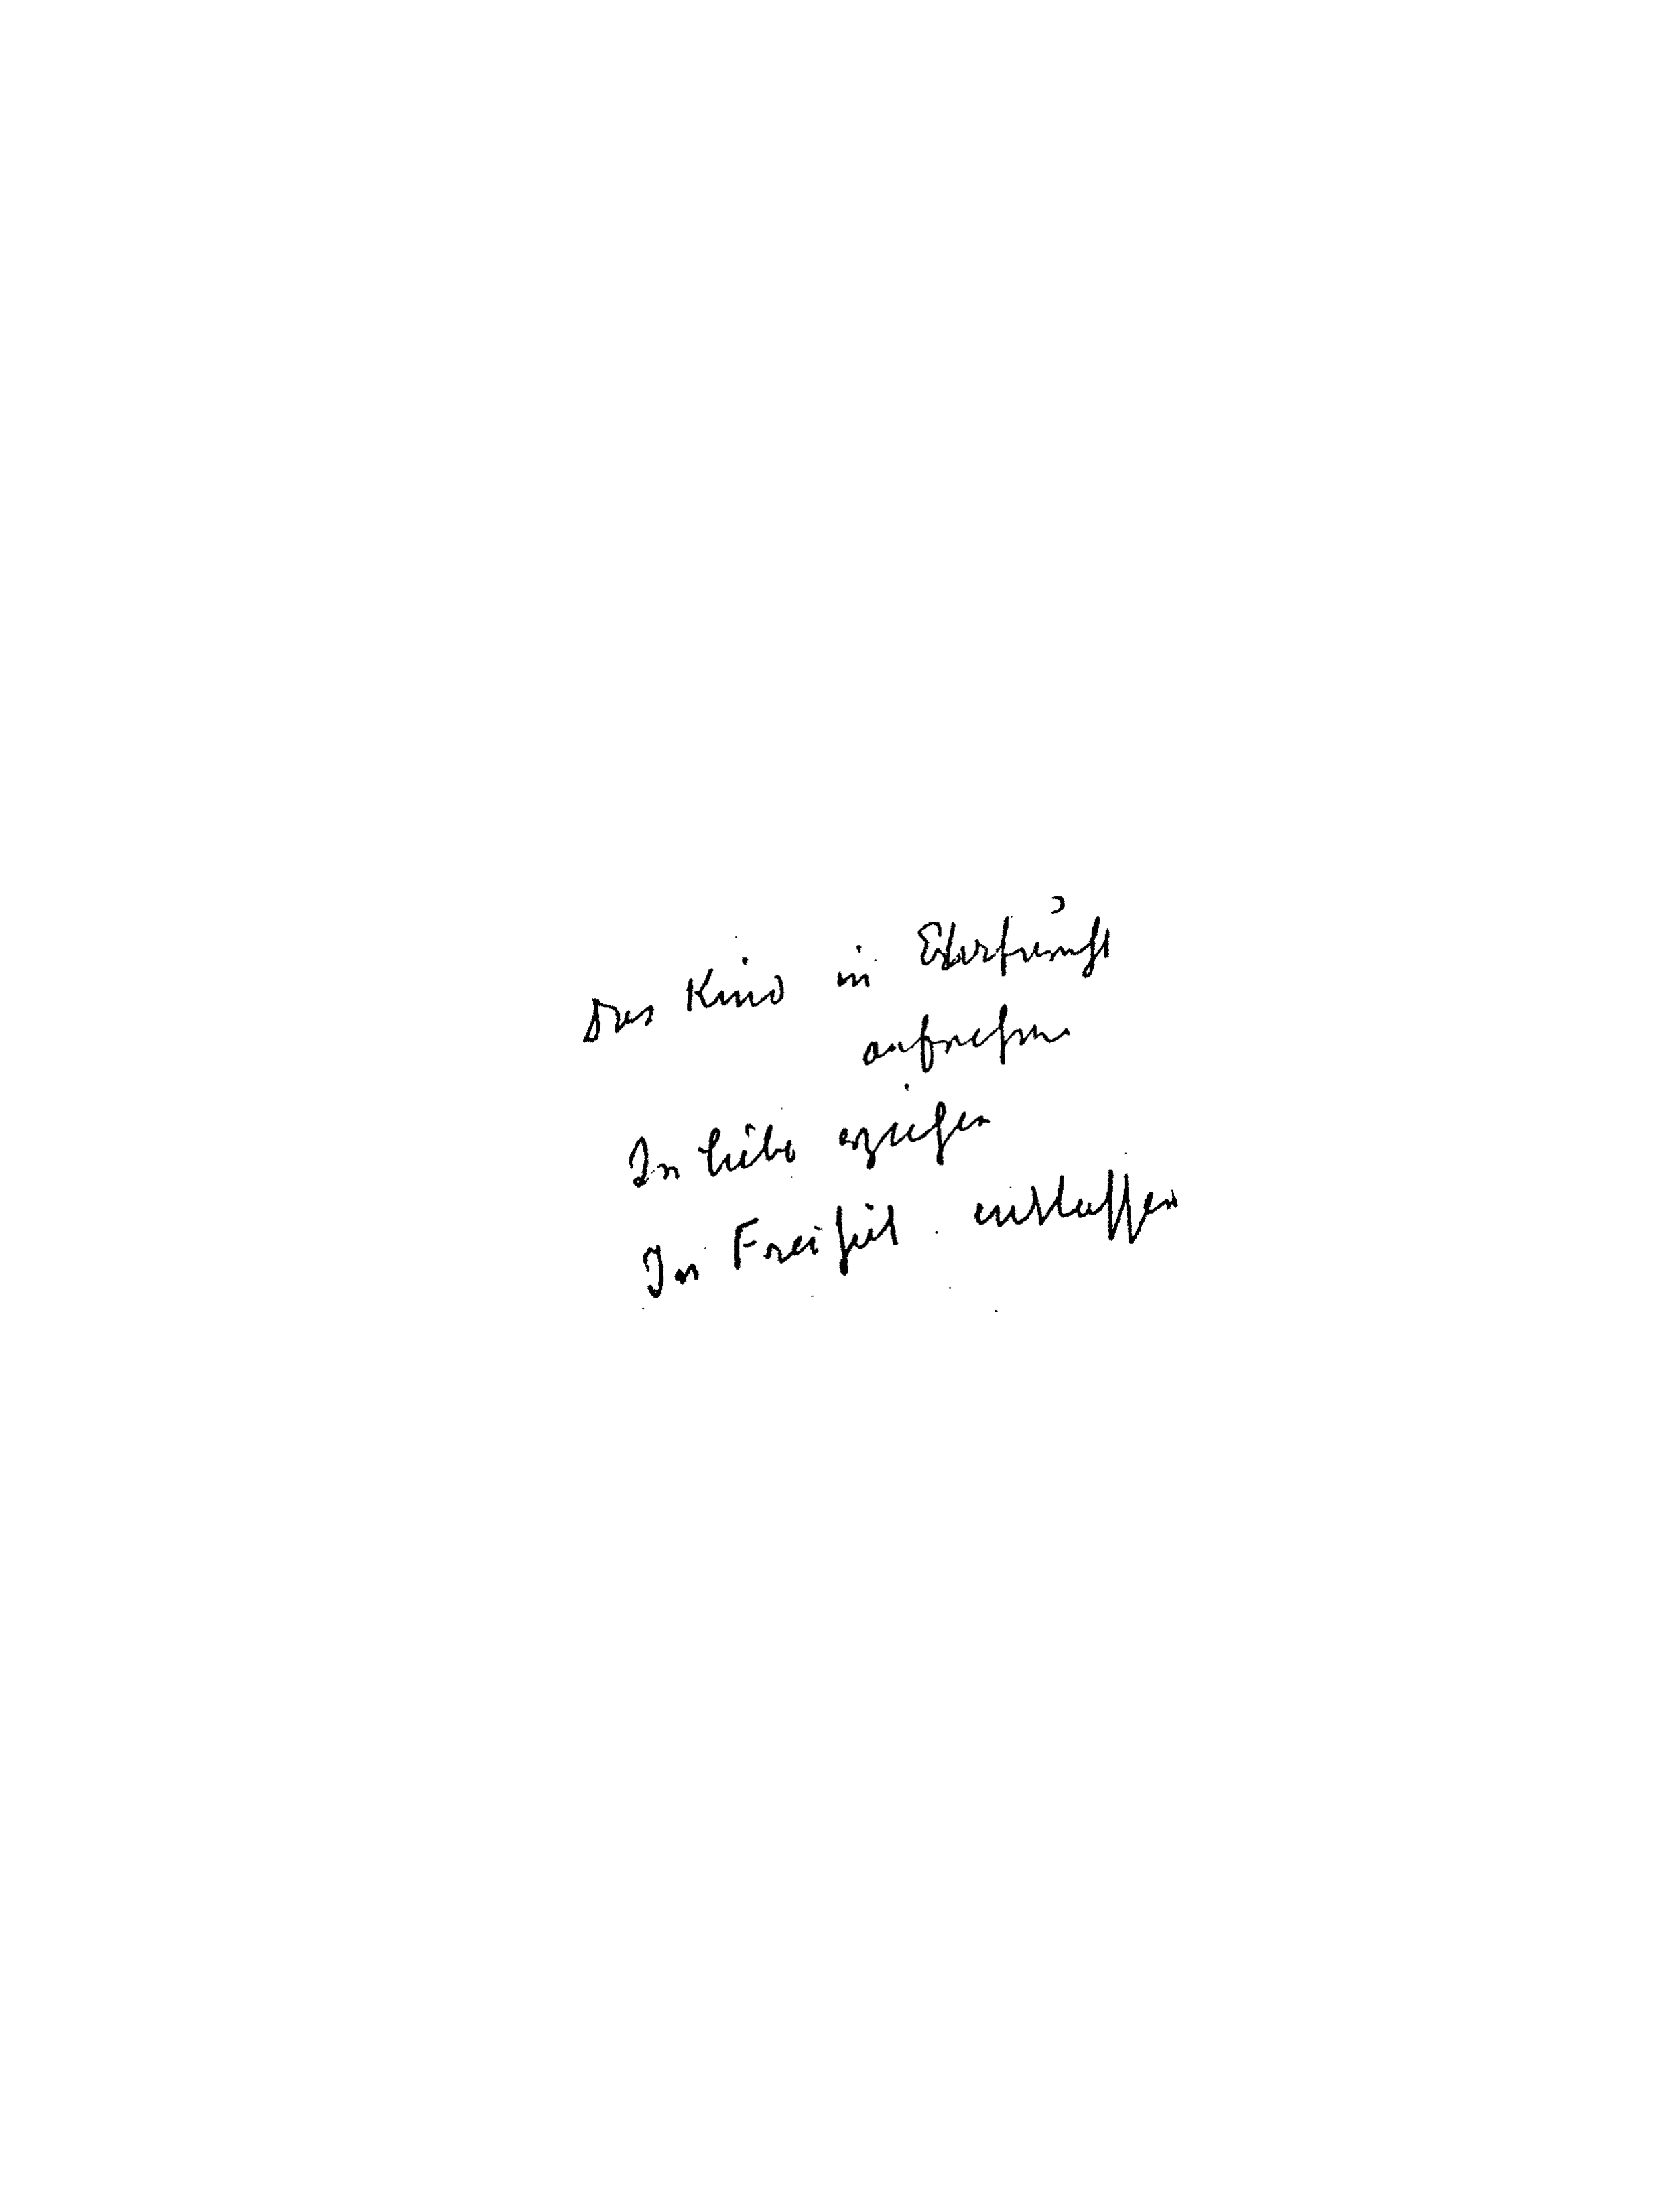 Das Kind in Ehrfurcht
aufnehmen
In Liebe erziehen
In Freiheit entlassen